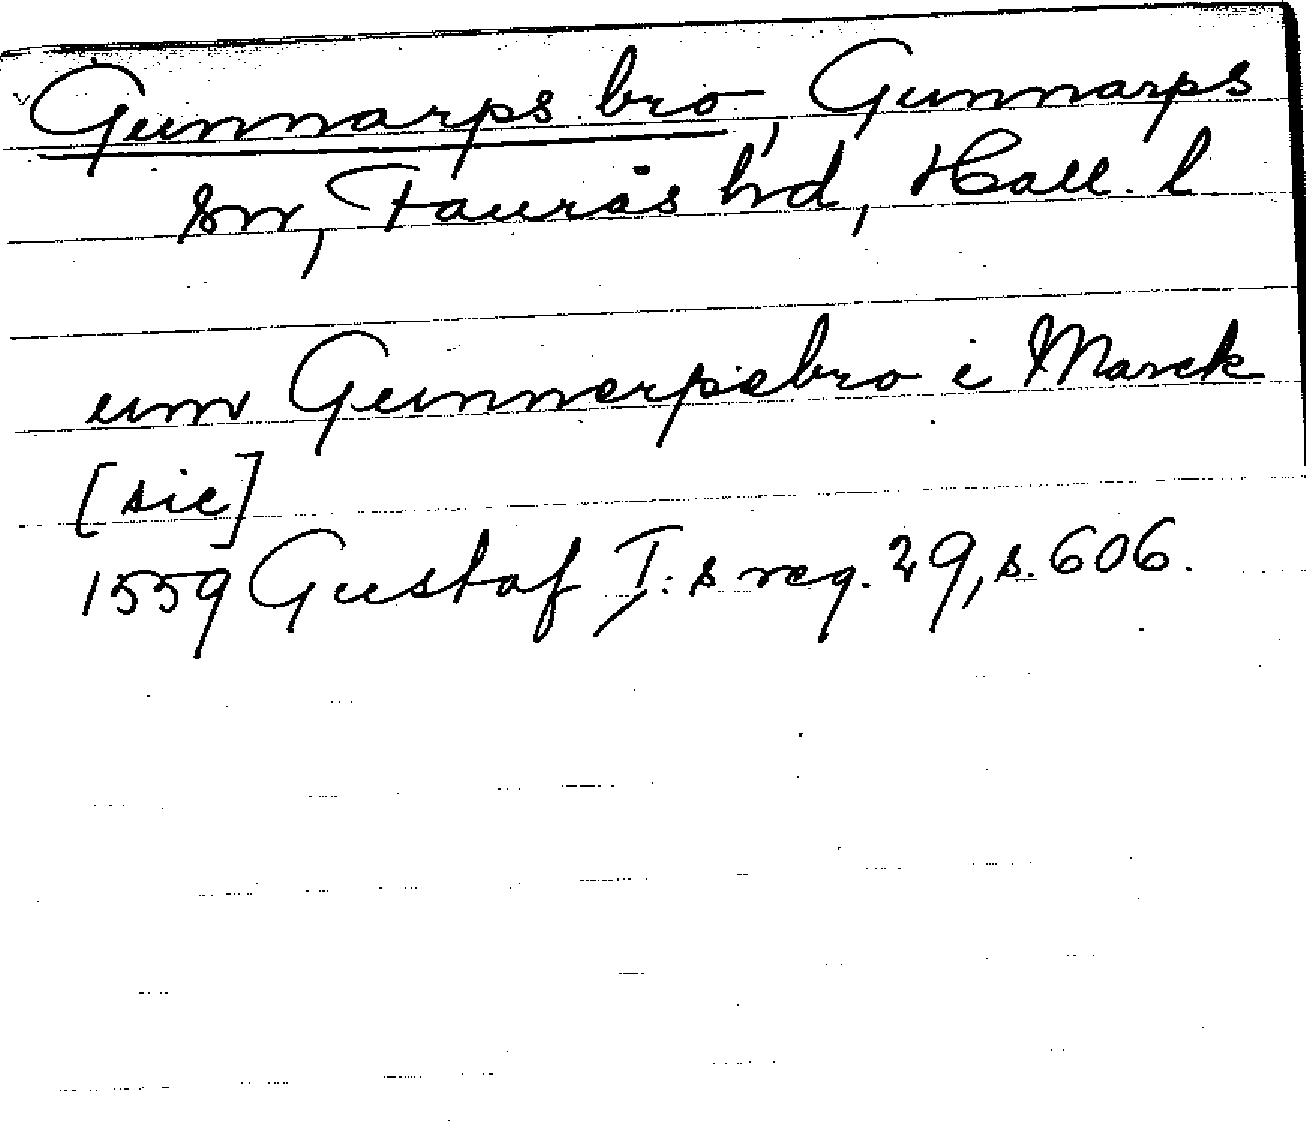 Gunnarps bro, Gunnarps
sn, Faurås hd, Hall. l
um Gunnerpsbro i Marck
[sic]
1559 Gustaf I:s reg. 29, s. 606.